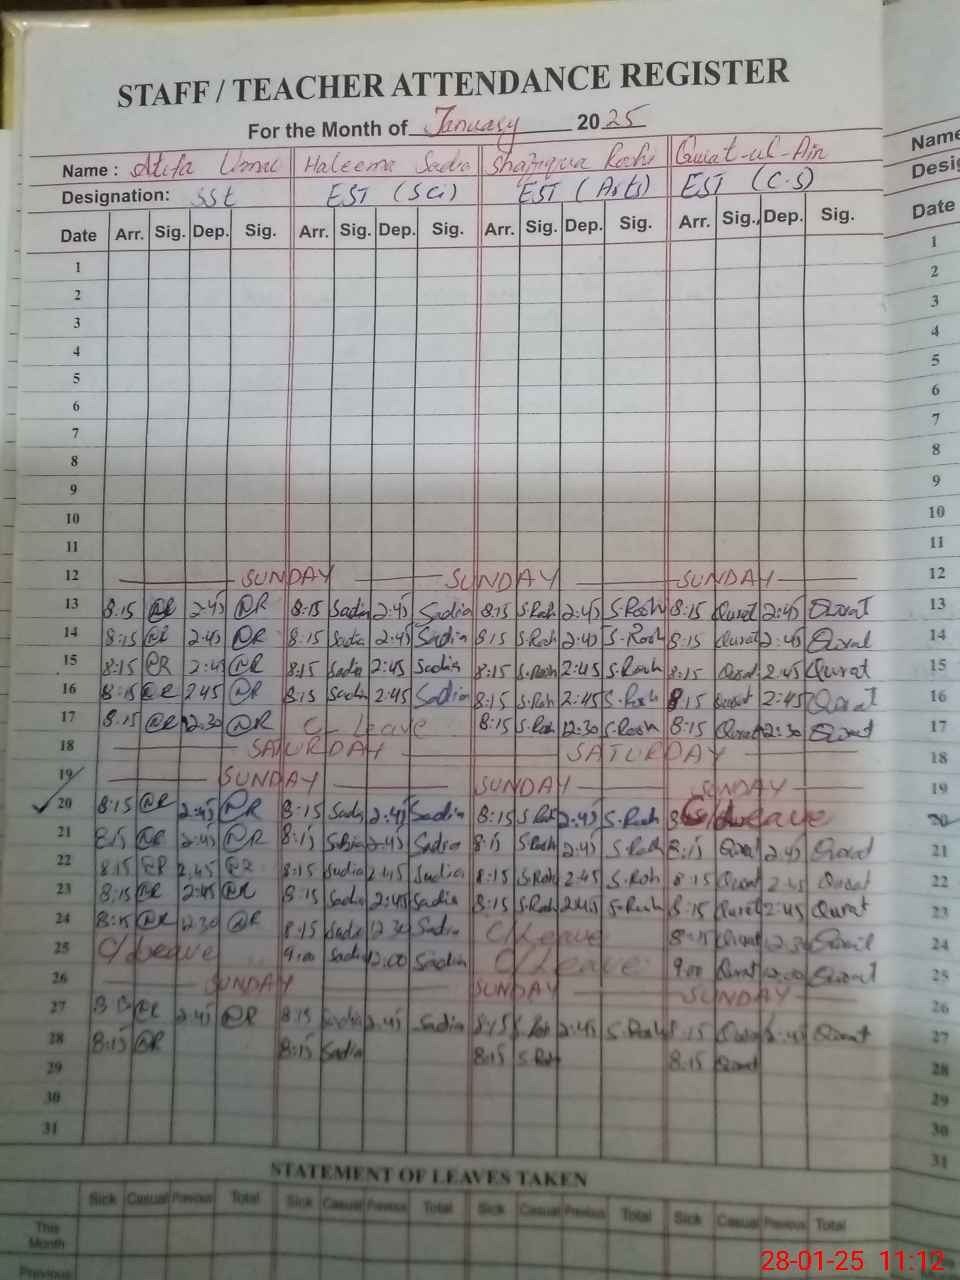 STAFF / TEACHER ATTENDANCE REGISTER
For the Month of January 2025
Name : Atifa Haleema Sadia Shafiqua Qurat-ul-Ain Name
Designation: SSt EST (Sci) EST (Arts) EST (C.S) Desig
Date Arr. Sig. Dep. Sig. Arr. Sig. Dep. Sig. Arr. Sig. Dep. Sig. Arr. Sig. Dep. Sig. Date
1 1
2 2
3 3
4 4
5 5
6 6
7 7
8 8
9 9
10 10
11 11
12 SUNDAY SUNDAY SUNDAY 12
13 8:15 @R 2:45 @R 8:15 Sadia 2:45 Sadia 8:15 S.Rosh 2:45 S.Rosh 8:15 Qurat 2:45 Qurat 13
14 8:15 @R 2:45 @R 8:15 Sadia 2:45 Sadia 8:15 S.Rosh 2:45 S.Rosh 8:15 Qurat 2:45 Qurat 14
15 8:15 @R 2:45 @R 8:15 Sadia 2:45 Sadia 8:15 S.Rosh 2:45 S.Rosh 8:15 Qurat 2:45 Qurat 15
16 8:15 @R 2:45 @R 8:15 Sadia 2:45 Sadia 8:15 S.Rosh 2:45 S.Rosh 8:15 Qurat 2:45 Qurat 16
17 8:15 @R 12:30 @R C/ Leave 8:15 S.Rosh 12:30 S.Rosh 8:15 Qurat 12:30 Qurat 17
18 SATURDAY SATURDAY 18
19 SUNDAY SUNDAY SUNDAY 19
20 8:15 @R 2:45 @R 8:15 Sadia 2:45 Sadia 8:15 S.Rosh 2:45 S.Rosh C/Leave 20
21 8:15 @R 2:45 @R 8:15 Sadia 2:45 Sadia 8:15 S.Rosh 2:45 S.Rosh 8:15 Qurat 2:45 Qurat 21
22 8:15 @R 2:45 @R 8:15 Sadia 2:45 Sadia 8:15 S.Rosh 2:45 S.Rosh 8:15 Qurat 2:45 Qurat 22
23 8:15 @R 2:45 @R 8:15 Sadia 2:45 Sadia 8:15 S.Rosh 2:45 S.Rosh 8:15 Qurat 2:45 Qurat 23
24 8:15 @R 12:30 @R 8:15 Sadia 12:30 Sadia C/Leave 8:15 Qurat 12:30 Qurat 24
25 C/Leave 9:00 Sadia 12:00 Sadia C/Leave 9:00 Qurat 12:00 Qurat 25
26 SUNDAY SUNDAY SUNDAY 26
27 8:15 @R 2:45 @R 8:15 Sadia 2:45 Sadia 8:15 S.Rosh 2:45 S.Rosh 8:15 Qurat 2:45 Qurat 27
28 8:15 @R 8:15 Sadia 8:15 S.Rosh 8:15 Qurat 28
29 29
30 30
31 31
STATEMENT OF LEAVES TAKEN
Sick Casual Previous Total Sick Casual Previous Total Sick Casual Previous Total Sick Casual Previous Total
This
Month
Previous
28-01-25 11:12